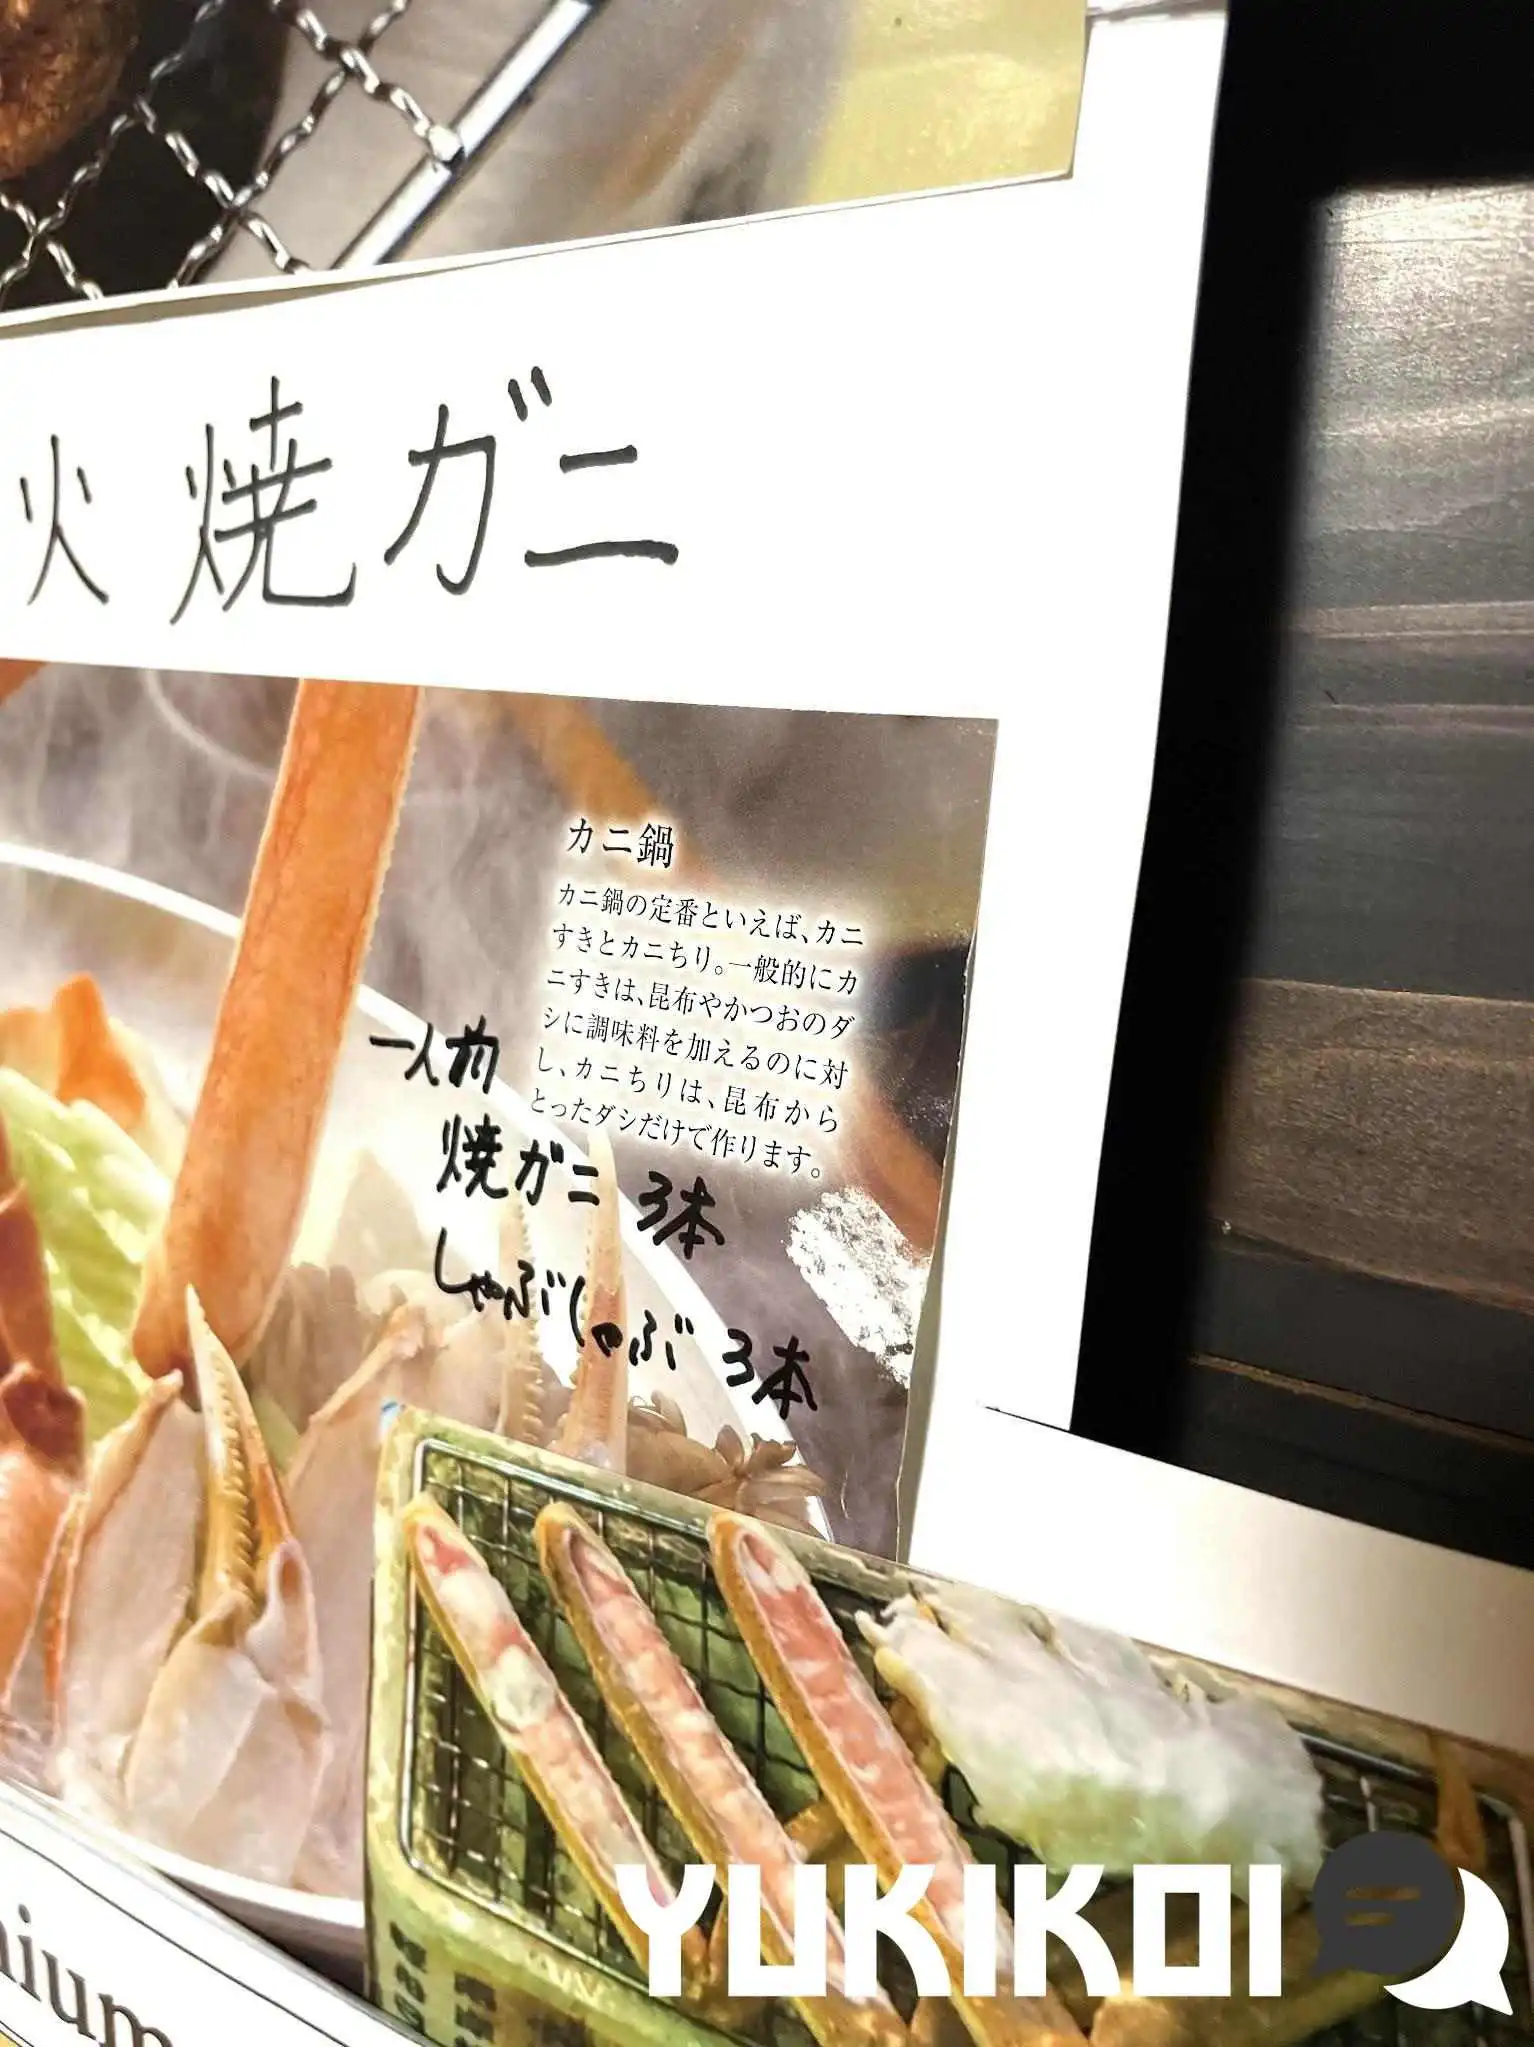 火 焼ガニ
カニ鍋
カニ鍋の定番といえば、カニ
すきとカニちり。一般的にカ
ニすきは、昆布やかつおのダ
シに調味料を加えるのに対
し、カニちりは、昆布から
とったダシだけで作ります。
一人前
焼ガニ 3本
しゃぶしゃぶ 3本
YUKIKOI